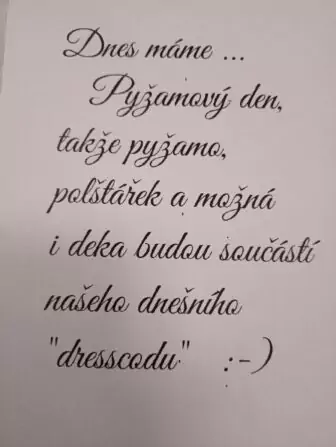 Dnes máme ...
Pyžamový den,
takže pyžamo,
polštářek a možná
i deka budou součástí
našeho dnešního
"dresscodu" :-)